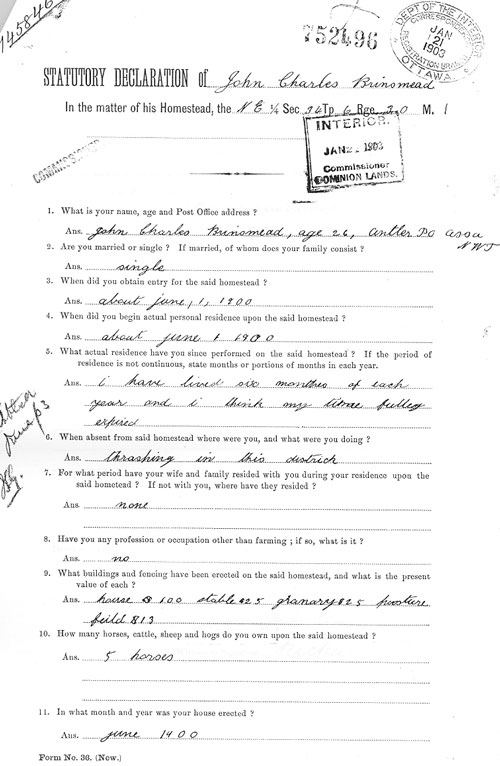 145846
752496
DEPT OF THE INTERIOR
CORRESPONDENCE
JAN
21
1903
REGISTRATION BRANCH
OTTAWA.
STATUTORY DECLARATION of John Charles Brinsmead
In the matter of his Homestead, the N E ¼ Sec. 34 Tp. 6 Rge. 30 M. 1
INTERIOR.
JAN 2 1903
Commissioner
DOMINION LANDS.
COMMISSIONER
1. What is your name, age and Post Office address ?
Ans. John Charles Brinsmead, age 26, Antler PO Assa
NWT
2. Are you married or single ? If married, of whom does your family consist ?
Ans. single
3. When did you obtain entry for the said homestead ?
Ans. about june, 1, 1900
4. When did you begin actual personal residence upon the said homestead ?
Ans. about june 1 1900
5. What actual residence have you since performed on the said homestead ? If the period of
residence is not continuous, state months or portions of months in each year.
Ans. i have lived six monthes of each
year and i think my time fulley
expired
June 03
6. When absent from said homestead where were you, and what were you doing ?
Ans. thrashing in this districh
7. For what period have your wife and family resided with you during your residence upon the
said homestead ? If not with you, where have they resided ?
Ans. none
8. Have you any profession or occupation other than farming ; if so, what is it ?
Ans. no
9. What buildings and fencing have been erected on the said homestead, and what is the present
value of each ?
Ans. house $100 stable $25 granary $25 pasture
feild $13
10. How many horses, cattle, sheep and hogs do you own upon the said homestead ?
Ans. 5 horses
11. In what month and year was your house erected ?
Ans. june 1900
Form No. 36. (New.)